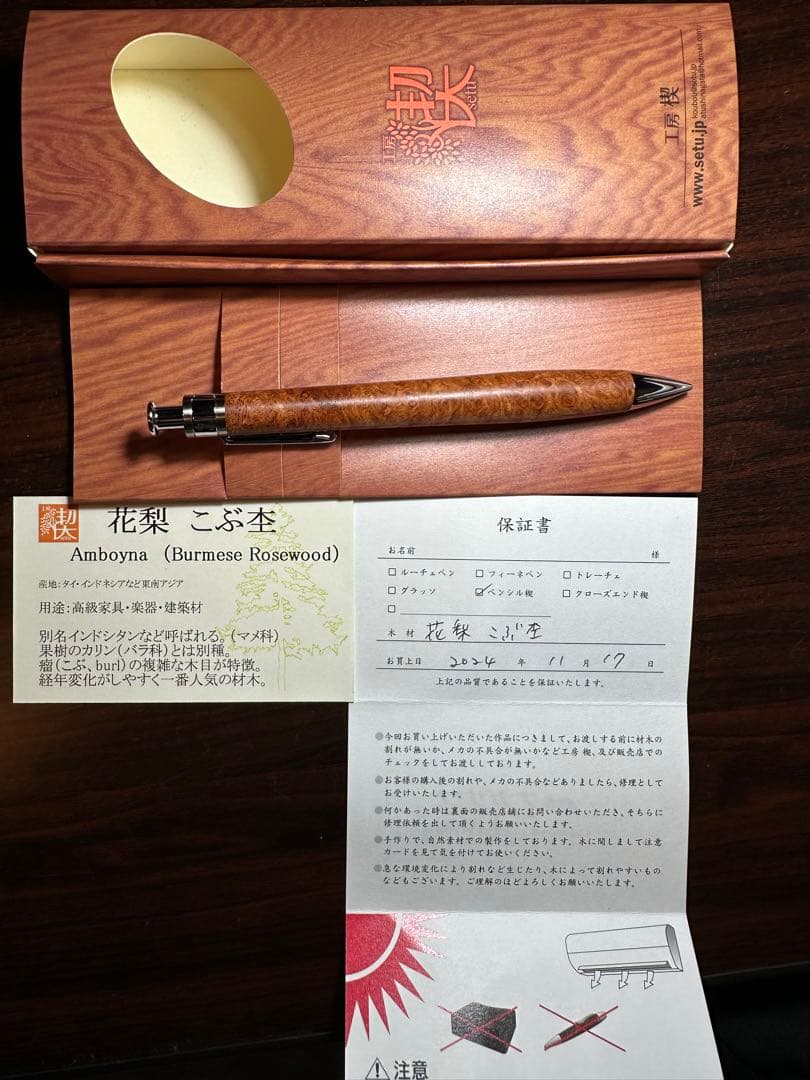 工房 楔
setu
工房 楔
www.setu.jp
koubou@setu.jp
工房 楔
花梨 こぶ杢
Amboyna (Burmese Rosewood)
産地:タイ・インドネシアなど東南アジア
用途:高級家具・楽器・建築材
別名インドシタンなど呼ばれる。(マメ科)
果樹のカリン(バラ科)とは別種。
瘤(こぶ、burl)の複雑な木目が特徴。
経年変化がしやすく一番人気の材木。
保証書
お名前 様
□ ルーチェペン □ フィーネペン □ トレーチェ
□ グラッソ ☑ ペンシル楔 □ クローズエンド楔
□
木 材 花梨 こぶ杢
お買上日 2024 年 11 月 17 日
上記の品質であることを保証いたします。
●今回お買い上げいただいた作品につきまして、お渡しする前に材木の
割れが無いか、メカの不具合が無いかなど工房 楔、及び販売店での
チェックをしてお渡ししております。
●お客様の購入後の割れや、メカの不具合などありましたら、修理として
お受けいたします。
●何かあった時は裏面の販売店舗にお問い合わせいただき、そちらに
修理依頼を出して頂くようお願いいたします。
●手作りで、自然素材での製作をしております。木に関しまして注意
カードを見て気を付けてお使いください。
●急な環境変化により割れなど生じたり、木によって割れやすいもの
などもございます。ご理解のほどよろしくお願いいたします。
注意